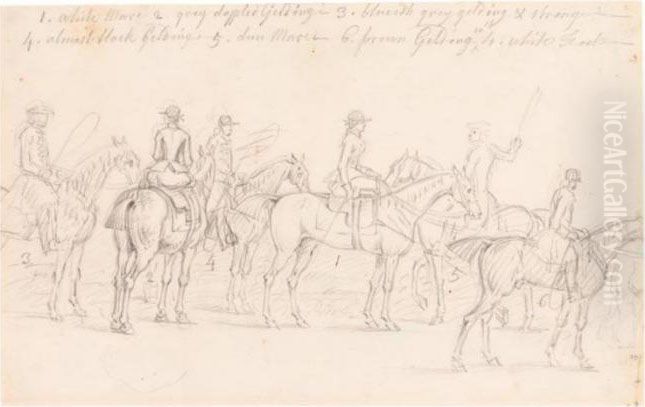 1. white Mare 2 grey dapple Gelding 3. blueish grey gelding &
4. almost black Gelding 5. dun Mare 6. brown Gelding 4. white
3 2 4 1 5
NiceArtGallery.com